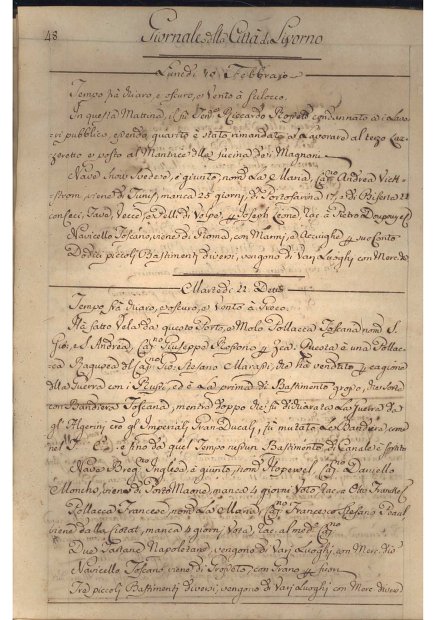 48 Giornale della Città di Livorno
Lunedì 10 Febbrajo
Tempo frà chiaro, e oscuro, e Vento à Scilocco.
In questa Mattina, il fù Ten.e Riccardo condannato a i Lavo-
ri pubblici, essendo guarito è stato rimandato a lavorare al terzo Laz-
zeretto e posto al Mantice della fucina de i Magnani
Nave Svedese, è giunto, nom. La Maria, Cap.no Andrea
viene di Tunis, manca 25 giorni, di Portofarina 17, e di Biserta 11
con Ceci, Fave, Vecce, e Pelli di Volpe, p Joseph Leone, rac. à Pietro
Navicello Toscano, viene di Roma, con Marmi, e Acciughe p suo Conto
Dodici piccoli Bastimenti diversi, vengono di Varj Luoghi con Merc. div.
Martedì 11 Detto
Tempo frà chiaro, e oscuro, e Vento à Greco.
Hà fatto Vela da questo Porto, e Molo Pollacca Toscana nom. S.
Gio: e S. Andrea, Cap.no Giuseppe p Zea. Questa è una Polla-
cca Ragusea del Cap.no Stefano che hà venduto p cagione
della Guerra con i Russi, ed è la prima di Bastimento grosso, che sorte
con Bandiera Toscana, mentre doppo che fù dichiarata la Guerra da
gl'Algerini, cio gl'Imperiali Gran Ducali, fù mutata la Bandiera, come
nel e fino da quel Tempo nessun Bastimento di Canale è sortito
Nave Brig.no Inglese è giunto, nom. Hopewel, Cap.no Daniello
viene di Porto Maone, manca 4 giorni Voto, rac. a
Pollacca Francese, nom. La Maria, Cap.no Francesco Stefano
viene dalla Ciotat, manca 4 giorni, Vota, rac. al med. Cap.no
Due Tartane Napoletane, vengono di Varj Luoghi, con Merc. div.
Navicello Toscano viene di Grosseto, con Grano p fuori
Tre piccoli Bastimenti diversi, vengono di Varj Luoghi con Merc. diverse